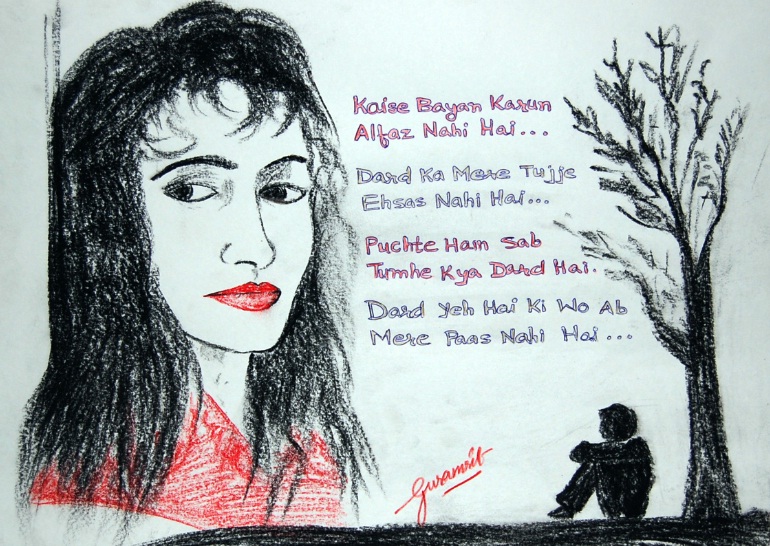 Kaise Bayan Karun
Alfaz Nahi Hai...
Dard Ka Mere Tujje
Ehsas Nahi Hai...
Puchte Ham Sab
Tumhe Kya Dard Hai.
Dard Yeh Hai Ki Wo Ab
Mere Paas Nahi Hai...
Guramrit